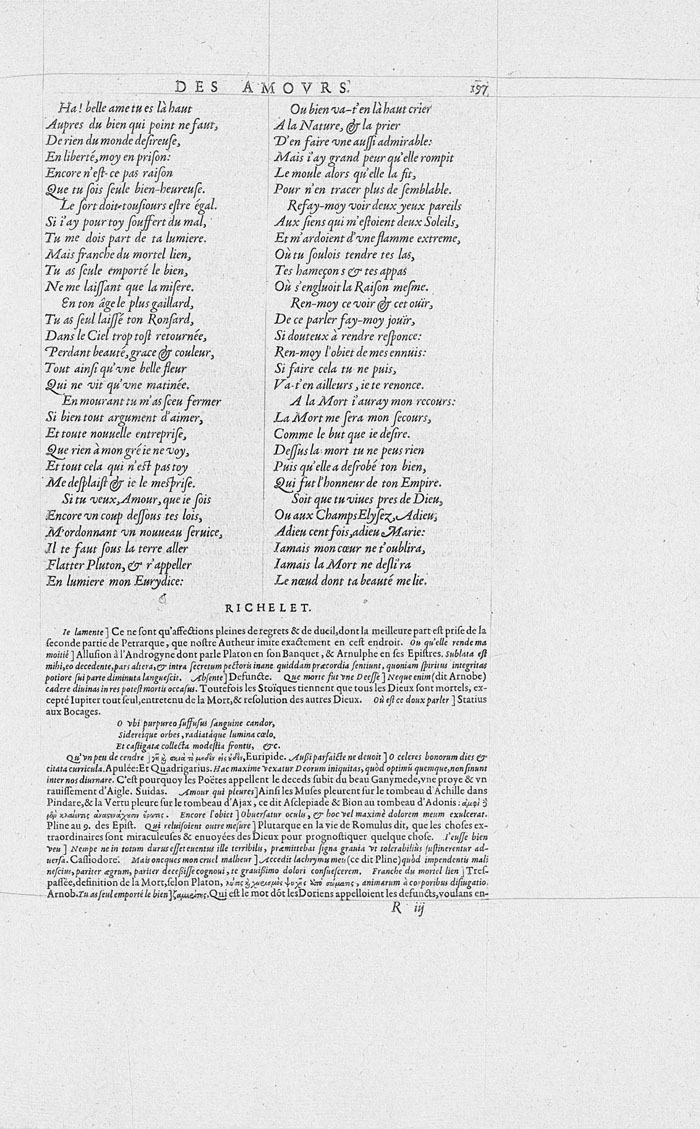 DES AMOVRS.
197
Ha! belle ame tu es là haut
Aupres du bien qui point ne faut,
De rien du monde desireuse,
En liberté, moy en prison:
Encore n'est-ce pas raison
Que tu sois seule bien-heureuse.
Le sort doit tousiours estre égal.
Si i'ay pour toy souffert du mal,
Tu me dois part de ta lumiere.
Mais franche du mortel lien,
Tu as seule emporté le bien,
Ne me laissant que la misere.
En ton âge le plus gaillard,
Tu as seul laissé ton Ronsard,
Dans le Ciel trop tost retournée,
Perdant beauté, grace & couleur,
Tout ainsi qu'vne belle fleur
Qui ne vit qu'vne matinée.
En mourant tu m'as sceu fermer
Si bien tout argument d'aimer,
Et toute nouuelle entreprise,
Que rien à mon gré ie ne voy,
Et tout cela qui n'est pas toy
Me desplaist & ie le mesprise.
Si tu veux, Amour, que ie sois
Encore vn coup dessous tes lois,
M'ordonnant vn nouueau seruice,
Il te faut sous la terre aller
Flatter Pluton, & r'appeller
En lumiere mon Eurydice:
Ou bien va-t'en là haut crier
A la Nature, & la prier
D'en faire vne aussi admirable:
Mais i'ay grand peur qu'elle rompit
Le moule alors qu'elle la fit,
Pour n'en tracer plus de semblable.
Refay-moy voir deux yeux pareils
Aux siens qui m'estoient deux Soleils,
Et m'ardoient d'vne flamme extreme,
Où tu soulois tendre tes las,
Tes hameçons & tes appas
Où s'engluoit la Raison mesme.
Ren-moy ce voir & cet ouïr,
De ce parler fay-moy jouïr,
Si douteux à rendre response:
Ren-moy l'obiet de mes ennuis:
Si faire cela tu ne puis,
Va-t'en ailleurs, ie te renonce.
A la Mort i'auray mon recours:
La Mort me sera mon secours,
Comme le but que ie desire.
Dessus la mort tu ne peus rien
Puis qu'elle a desrobé ton bien,
Qui fut l'honneur de ton Empire.
Soit que tu viues pres de Dieu,
Ou aux Champs Elysez, Adieu,
Adieu cent fois, adieu Marie:
Iamais mon cœur ne t'oublira,
Iamais la Mort ne deslira
Le nœud dont ta beauté me lie.
RICHELET.
Ie lamente] Ce ne sont qu'affections pleines de regrets & de dueil, dont la meilleure part est prise de la
seconde partie de Petrarque, que nostre Autheur imite exactement en cest endroit. Ou qu'elle rende ma
moitié] Allusion à l'Androgyne dont parle Platon en son Banquet, & Arnulphe en ses Epistres. Sublata est
mihi, eo decedente, pars altera, & intra secretum pectoris inane quiddam præcordia sentiunt, quoniam spiritus integritas
potiore sui parte diminuta languescit. Absente] Defuncte. Que morte fut vne Deesse] Neque enim (dit Arnobe)
cadere diuinas in res potest mortis occasus. Toutefois les Stoïques tiennent que tous les Dieux sont mortels, ex-
cepté Iupiter tout seul, entretenu de la Mort, & resolution des autres Dieux. Où est ce doux parler] Statius
aux Bocages.
O vbi purpureo suffusus sanguine candor,
Sidereique orbes, radiatáque lumina cœlo,
Et castigata collecta modestia frontis, &c.
Qu'vn peu de cendre] Euripide. Aussi parfaicte ne deuoit] O celeres bonorum dies &
citata curricula. Apulée: Et Quadrigarius. Hac maxime vexatur Deorum iniquitas, quòd optimũ quemque, non sinunt
inter nos diurnare. C'est pourquoy les Poëtes appellent le deceds subit du beau Ganymede, vne proye & vn
rauissement d'Aigle. Suidas. Amour qui pleures] Ainsi les Muses pleurent sur le tombeau d'Achille dans
Pindare, & la Vertu pleure sur le tombeau d'Ajax, ce dit Asclepiade & Bion au tombeau d'Adonis:
Encore l'obiet] Obuersatur oculis, & hoc vel maximè dolorem meum exulcerat.
Pline au 9. des Epist. Qui reluisoient outre mesure] Plutarque en la vie de Romulus dit, que les choses ex-
traordinaires sont miraculeuses & enuoyées des Dieux pour prognostiquer quelque chose. I'eusse bien
veu] Nempe ne in totum durus esset euentus ille terribilis, præmittebas signa grauia vt tolerabiliùs sustinerentur ad-
uersa. Cassiodore. Mais oncques mon cruel malheur] Accedit lachrymis meis (ce dit Pline) quòd impendentis mali
nescius, pariter ægram, pariter decessisse cognoui, te grauissimo dolori consuescerem. Franche du mortel lien] Tres-
passée, definition de la Mort, selon Platon, animarum à corporibus disiugatio.
Arnob. Tu as seul emporté le bien] Qui est le mot dõt les Doriens appelloient les defuncts, voulans en-
R iij